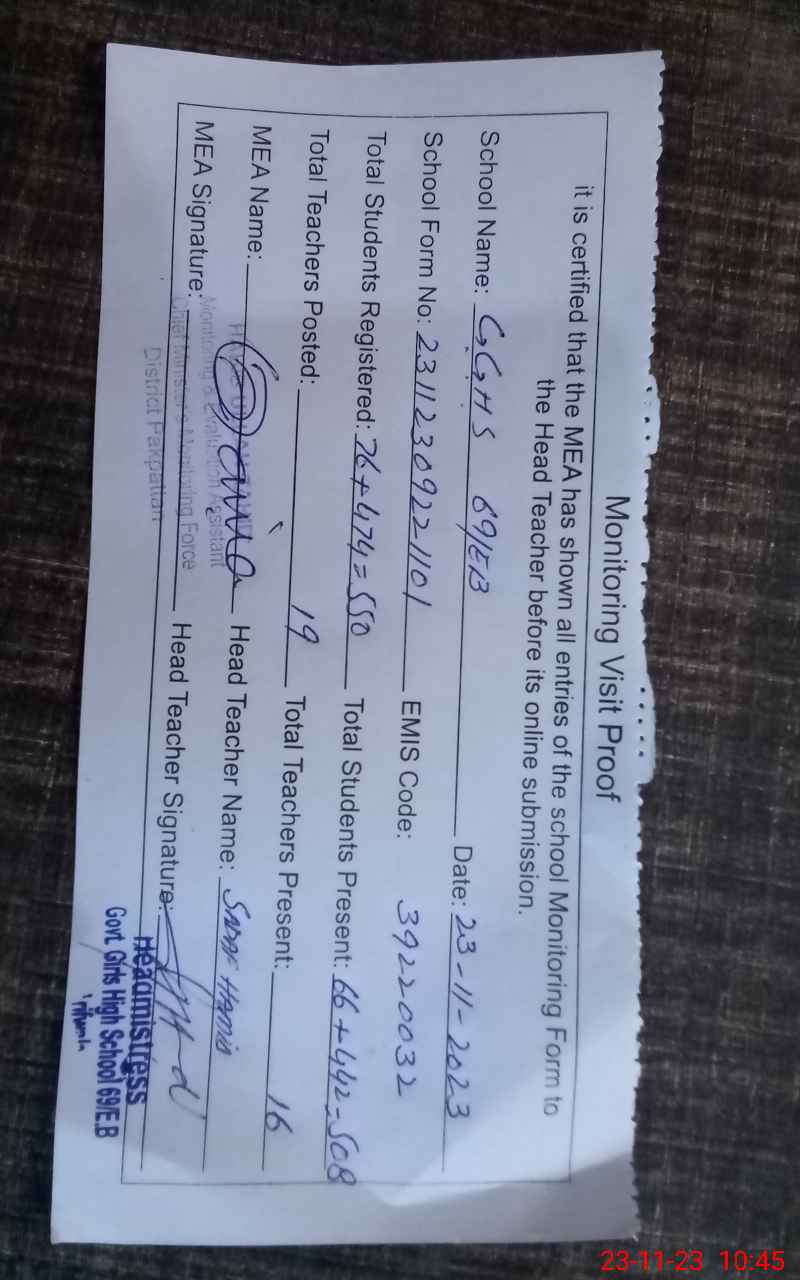 Monitoring Visit Proof
it is certified that the MEA has shown all entries of the school Monitoring Form to
the Head Teacher before its online submission.
School Name: GGHS 69/EB Date: 23-11-2023
School Form No: 23112309221101 EMIS Code: 39220032
Total Students Registered: 76+474=550 Total Students Present: 66+442=508
Total Teachers Posted: 19 Total Teachers Present: 16
MEA Name: Head Teacher Name: Harris
Monitoring & Evaluation Assistant
MEA Signature: Head Teacher Signature:
Chief Minister's Monitoring Force
District Pakpattan
Headmistress
Govt. Girls High School 69/E.B
23-11-23 10:45